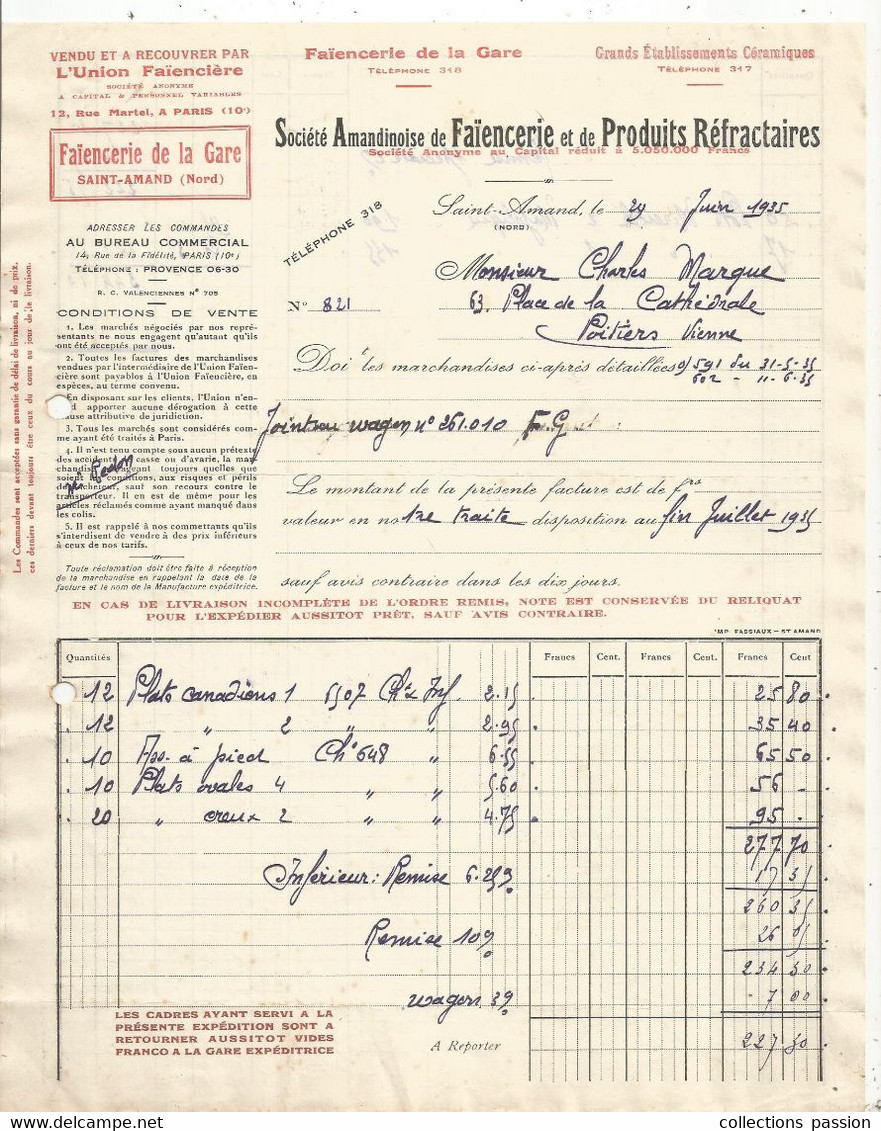 VENDU ET A RECOUVRER PAR
L'Union Faïencière
SOCIÉTÉ ANONYME
A CAPITAL & PERSONNEL VARIABLES
12, Rue Martel, A PARIS (10e)
Faïencerie de la Gare
SAINT-AMAND (Nord)
Faïencerie de la Gare
TÉLÉPHONE 318
Grands Établissements Céramiques
TÉLÉPHONE 317
Société Amandinoise de Faïencerie et de Produits Réfractaires
Société Anonyme au Capital réduit à 5.050.000 Francs
ADRESSER LES COMMANDES
AU BUREAU COMMERCIAL
14, Rue de la Fidélité, PARIS (10e)
TÉLÉPHONE : PROVENCE 06-30
R. C. VALENCIENNES N° 705
TÉLÉPHONE 318
Saint-Amand, le 29 Juin 1935
(NORD)
Monsieur Charles Marque
N° 821
63. Place de la Cathédrale
Poitiers Vienne
Doit les marchandises ci-après détaillées 591 du 31-5-35
602 - 11-6-35
Joint au wagon n° 261.010 F.G
Le montant de la présente facture est de frs
valeur en notre traite disposition au fin Juillet 1935
sauf avis contraire dans les dix jours.
CONDITIONS DE VENTE
1. Les marchés négociés par nos représentants
ne nous engagent qu'autant qu'ils
ont été acceptés par nous.
2. Toutes les factures des marchandises
vendues par l'intermédiaire de l'Union Faïencière
sont payables à l'Union Faïencière, en
espèces, au terme convenu.
En disposant sur les clients, l'Union n'entend
apporter aucune dérogation à cette
clause attributive de juridiction.
3. Tous les marchés sont considérés comme
ayant été traités à Paris.
4. Il n'est tenu compte sous aucun prétexte
des accidents, casse ou d'avarie, la marchandise
voyageant toujours quelles que
soient les conditions, aux risques et périls
de l'acheteur, sauf son recours contre le
transporteur. Il en est de même pour les
articles réclamés comme ayant manqué dans
les colis.
5. Il est rappelé à nos commettants qu'ils
s'interdisent de vendre à des prix inférieurs
à ceux de nos tarifs.
Toute réclamation doit être faite à réception
de la marchandise en rappelant la date de la
facture et le nom de la Manufacture expéditrice.
Les Commandes sont acceptées sans garantie de délai de livraison, ni de prix,
ces derniers devant toujours être ceux du cours au jour de la livraison.
EN CAS DE LIVRAISON INCOMPLÈTE DE L'ORDRE REMIS, NOTE EST CONSERVÉE DU RELIQUAT
POUR L'EXPÉDIER AUSSITOT PRÊT, SAUF AVIS CONTRAIRE.
IMP. FASSIAUX - ST AMAND
Quantités Francs Cent. Francs Cent. Francs Cent
12 Plats canadiens 1 5507 Choix Inf. 2.15 25 80
12 " 2 " " 2.95 35 40
10 Ass. à pied Ch° 648 " 6.55 65 50
10 Plats ovales 4 " " 5.60 56 -
20 " creux 2 " " 4.75 95 .
277 70
Inférieur : Remise 6.25% 17 35
260 35
Remise 10% 26 05
234 30
wagon 3% 7 00
A Reporter 227 30
LES CADRES AYANT SERVI A LA
PRÉSENTE EXPÉDITION SONT A
RETOURNER AUSSITOT VIDES
FRANCO A LA GARE EXPÉDITRICE
collections passion